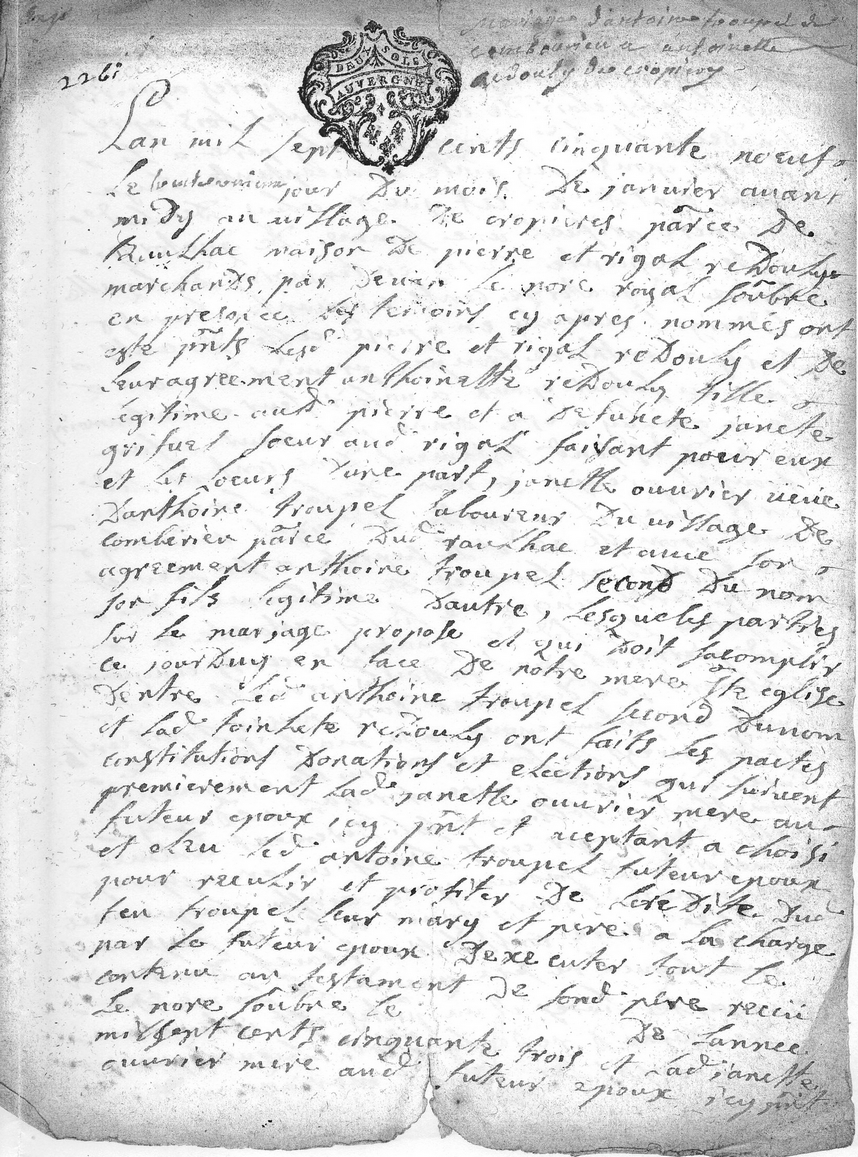 mariage d'antoine troupel de
comberieu a antoinette
redouly de cropieres
226:
DEUX SOLS
AUVERGNE
Lan mil sept cents cinquante noeuf
Le jour Du mois De janvier avant
midy au village De cropieres parce De
Raulhac maison De pierre et rigal redoulys
marchands par Devan Le nore royal soubre
en presence Des temoins cy apres nommés ont
este pnts Lesd pierre et rigal redouly et De
leur agreement anthoinette redouly fille
legitime aud pierre et a Defuncte janete
grifuel soeur aud rigal faisant pour eux
et les soeurs Dune part, janette ouvrier veuve
Danthoine troupel laboureur Du village De
comberieu parce Dud raulhac et avec son
agreement anthoine troupel second Du nom
son fils legitime Dautre, Lesqueles partyes
sur Le mariage propose et qui Doit sacomplir
ce jourDuy en face De nôtre mere Ste eglise
Dentre Led anthoine troupel second Dunom
et Lad toinete redouly ont faits les pactes
constitutions Donations et elections qui suivent
premierement Lad janette ouvrier mere au
futeur epoux icy pnt et aceptant a choisi
et elzu Led antoine troupel futeur epoux
pour reculir et profiter De LereDite Dud
feu troupel leur mary et pere a La charge
par Le futeur epoux Dexecuter tout le
contenu au testament De sond pere receu
Le nore soubre le De Lannee
mil sept cents cinquante trois et Lad janette
ouvrier mere aud futeur epoux icy pnt